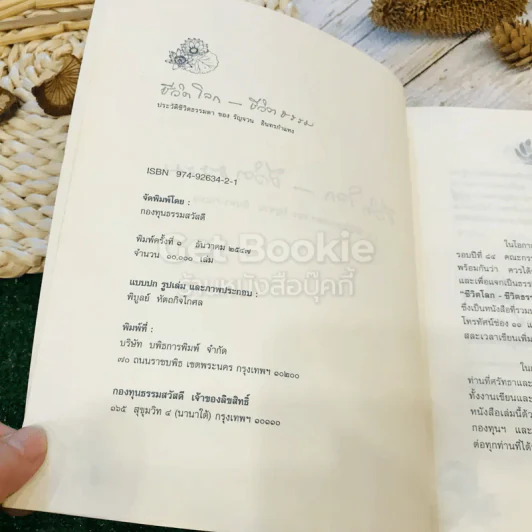 ชีวิตโลก — ชีวิตธรรม
ประวัติชีวิตธรรมดา ของ รัญจวน อินทรกำแหง
ISBN 974-92634-2-1
จัดพิมพ์โดย :
กองทุนธรรมสวัสดี
พิมพ์ครั้งที่ ๑ ธันวาคม ๒๕๔๗
จำนวน ๑๐,๐๐๐ เล่ม
แบบปก รูปเล่ม และภาพประกอบ :
พิบูลย์ หัตถกิจโกศล
พิมพ์ที่ :
บริษัท บพิธการพิมพ์ จำกัด
๗๐ ถนนราชบพิธ เขตพระนคร กรุงเทพฯ ๑๐๒๐๐
กองทุนธรรมสวัสดี เจ้าของลิขสิทธิ์
๑๖๕ สุขุมวิท ๔ (นานาใต้) กรุงเทพฯ ๑๐๑๑๐
Get Bookie
ร้านหนังสือบุ๊คกี้
ในโอกา
รอบปีที่ ๘๔ คณะกร
พร้อมกันว่า ควรได้
และเพื่อแจกเป็นธรร
"ชีวิตโลก - ชีวิตธรร
ซึ่งเป็นหนังสือที่รวม
โทรทัศน์ช่อง ๑๑ แ
สละเวลาเขียนเพิ่ม
ใน
ท่านที่ศรัทธาและ
ทั้งงานเขียนและ
หนังสือเล่มนี้ด้ว
กองทุนฯ และ
ต่อทุกท่านที่ได้